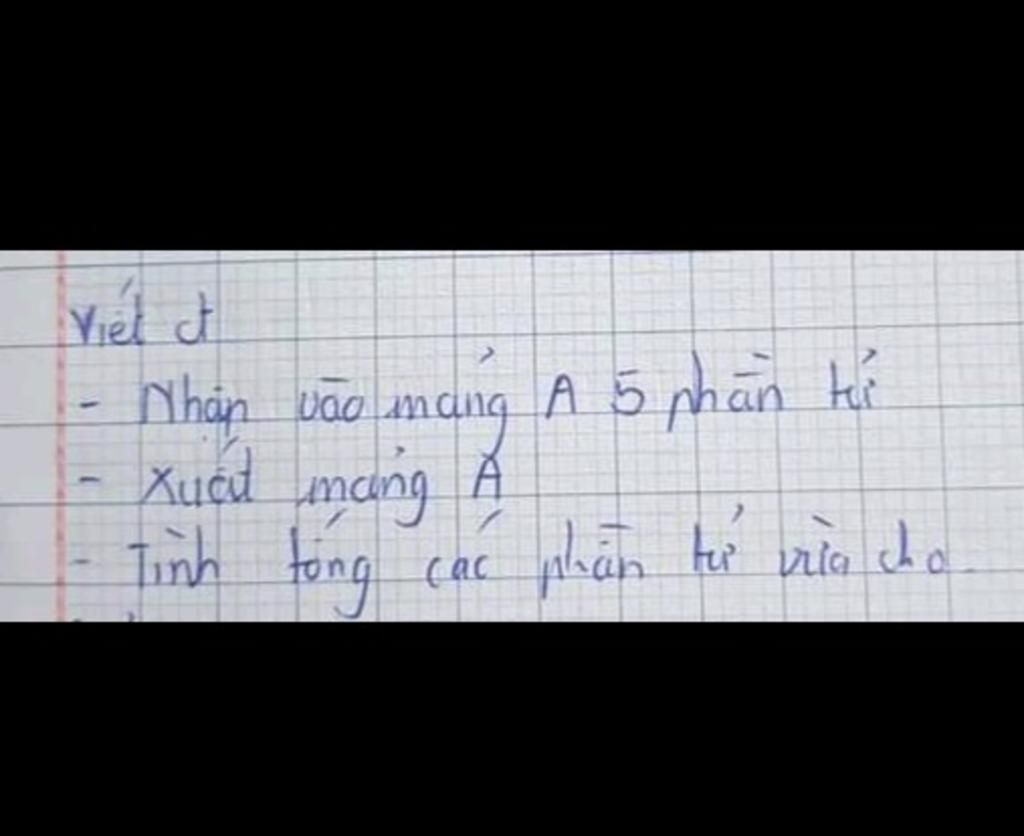 Viết ct
- Nhập vào mảng A 5 phần tử
- Xuất mảng A
- Tình tổng các phần tử vừa cho